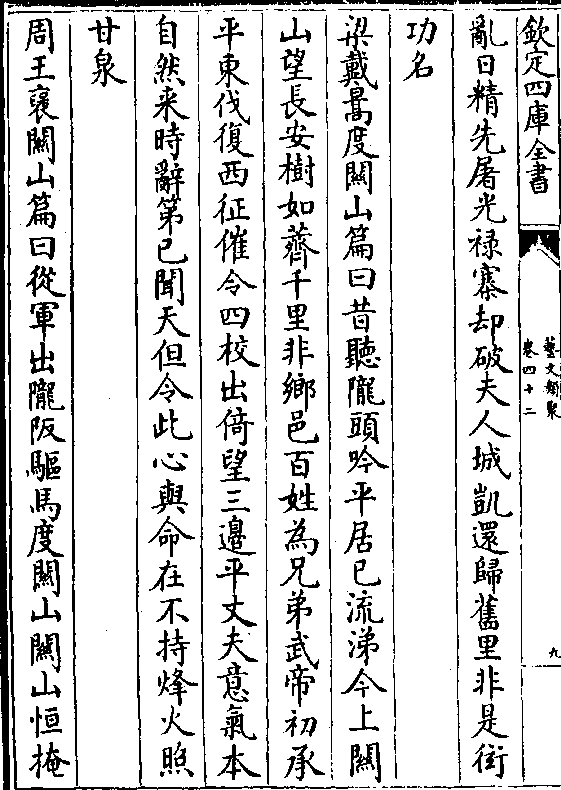 欽定四庫全書
藝文類聚
卷四十二
九
亂日精先屠光祿寨却破夫人城凱還歸舊里非是衒
功名
梁戴暠度闗山篇曰昔聽隴頭吟平居已流涕今上闗
山望長安樹如薺千里非鄉邑百姓為兄弟武帝初承
平東伐復西征催令四校出倚望三邉平丈夫意氣本
自然来時辭第已聞天但令此心與命在不持烽火照
甘泉
周王襃闗山篇曰從軍出隴阪驅馬度闗山闗山恒掩